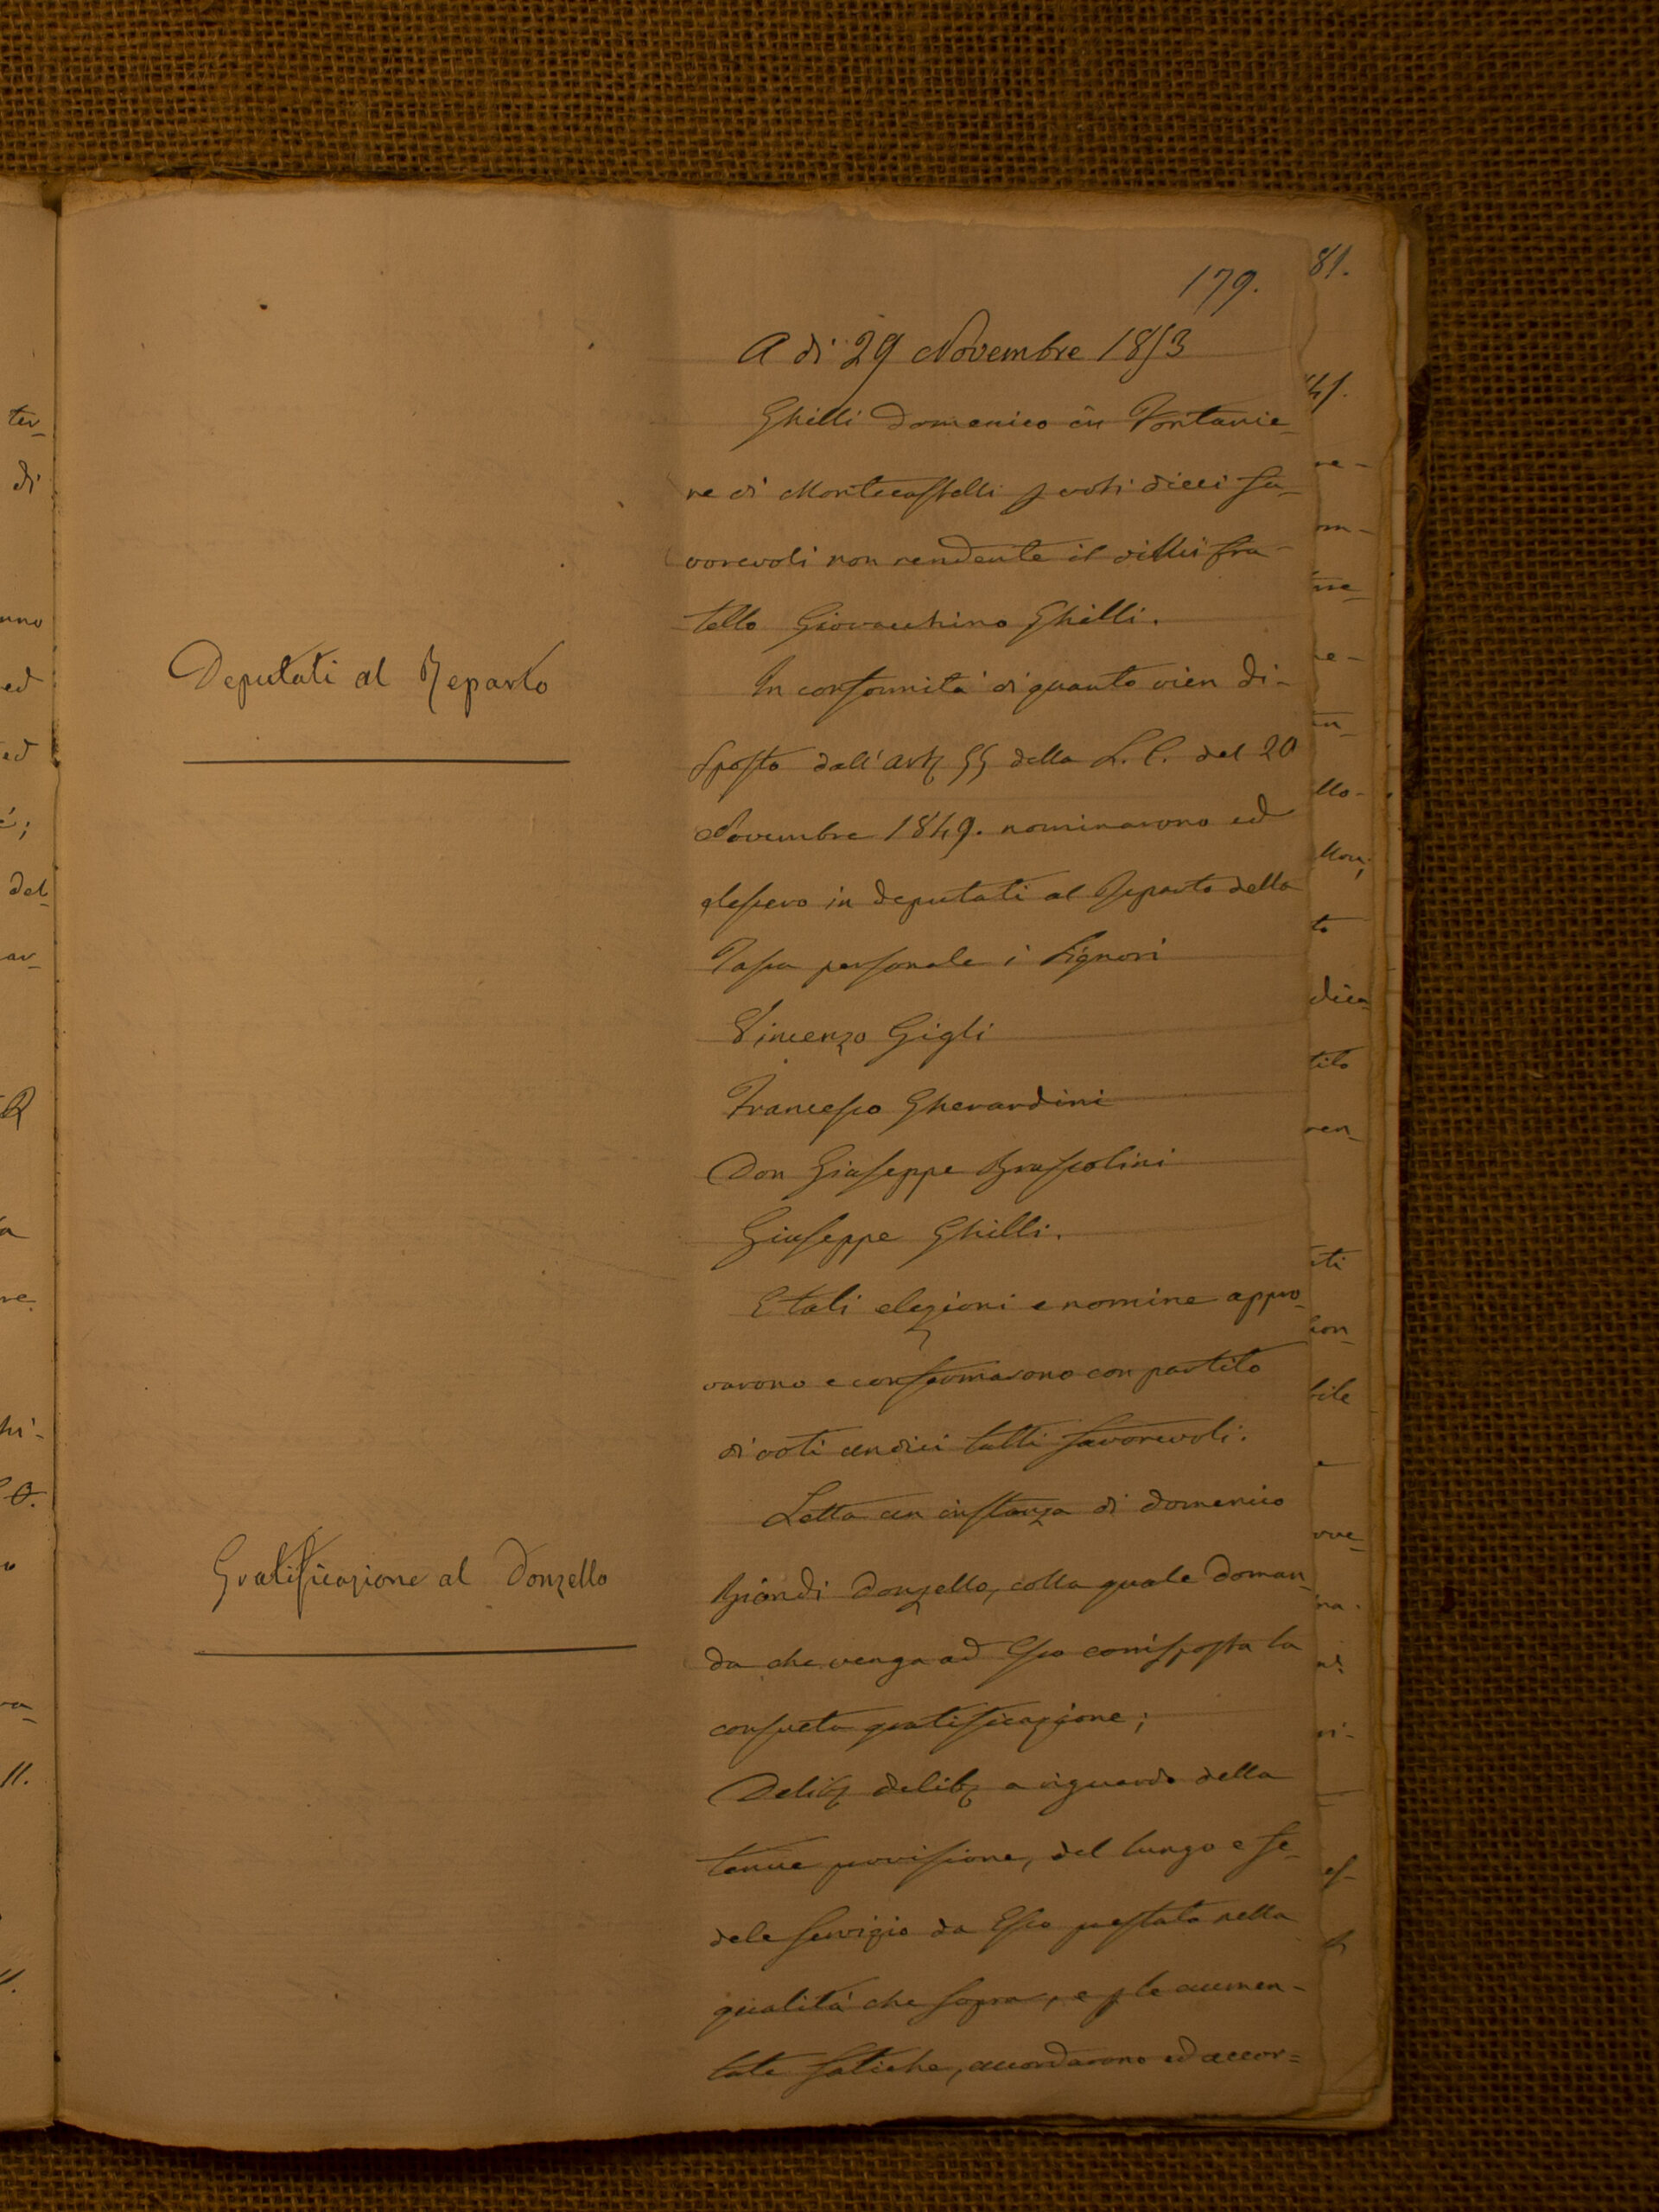 179.
A di 29 Novembre 1853
Ghilli Domenico in Fontanie-
re di Montecastelli p voti dieci fa-
vorevoli non rendente il di lui fra-
tello Giovacchino Ghilli.
Deputati al Reparto
In conformità di quanto vien di-
sposto dall'Art 55 della L. C. del 20
Novembre 1849. nominarono ed
elessero in deputati al Reparto della
Tassa personale i Signori
Vincenzo Gigli
Francesco Gherardini
Don Giuseppe
Giuseppe Ghilli.
E tali elezioni e nomine appro-
varono e confermarono con partito
di voti undici tutti favorevoli.
Gratificazione al Donzello
Letta un instanza di Domenico
Biondi Donzello, colla quale doman-
da che venga ad Esso corrisposta la
consueta gratificazione;
Delib delib a riguardo della
tenue provvisione, del lungo e fe-
dele servizio da Esso prestato nella
qualità che sopra, e p le aumen-
tate fatiche, accordarono ed accor=
81.